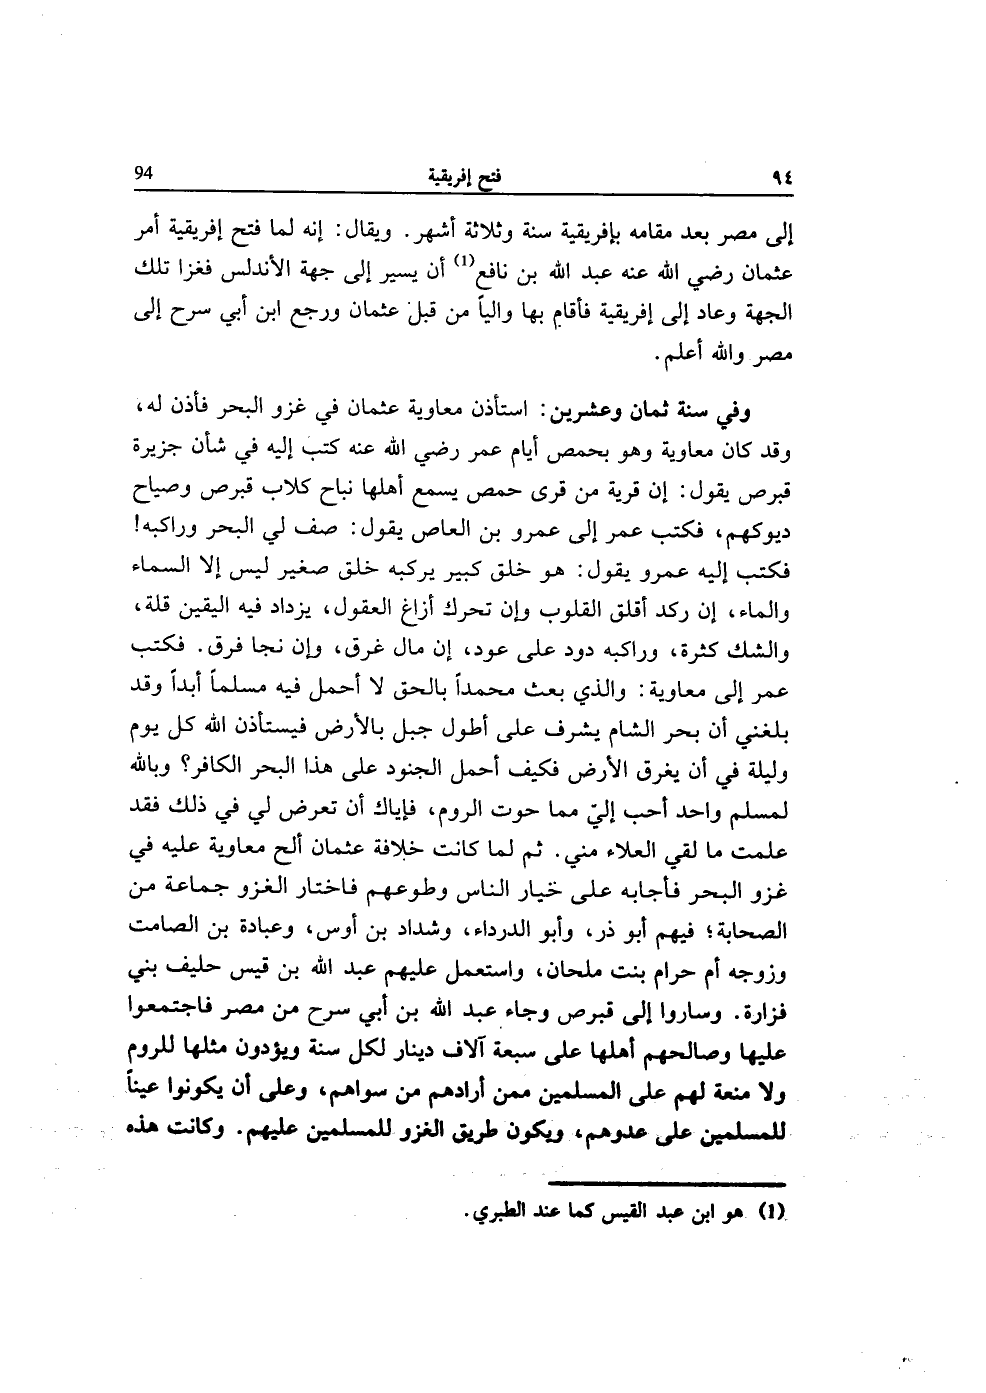 ٩٤ فتح إفريقية 94
إلى مصر بعد مقامه بإفريقية سنة وثلاثة أشهر. ويقال: إنه لما فتح إفريقية أمر
عثمان رضي الله عنه عبد الله بن نافع(1) أن يسير إلى جهة الأندلس فغزا تلك
الجهة وعاد إلى إفريقية فأقام بها والياً من قبل عثمان ورجع ابن أبي سرح إلى
مصر والله أعلم.
وفي سنة ثمان وعشرين: استأذن معاوية عثمان في غزو البحر فأذن له،
وقد كان معاوية وهو بحمص أيام عمر رضي الله عنه كتب إليه في شأن جزيرة
قبرص يقول: إن قرية من قرى حمص يسمع أهلها نباح كلاب قبرص وصياح
ديوكهم، فكتب عمر إلى عمرو بن العاص يقول: صف لي البحر وراكبه!
فكتب إليه عمرو يقول: هو خلق كبير يركبه خلق صغير ليس إلا السماء
والماء، إن ركد أقلق القلوب وإن تحرك أزاغ العقول، يزداد فيه اليقين قلة،
والشك كثرة، وراكبه دود على عود، إن مال غرق، وإن نجا فرق. فكتب
عمر إلى معاوية: والذي بعث محمداً بالحق لا أحمل فيه مسلماً أبداً وقد
بلغني أن بحر الشام يشرف على أطول جبل بالأرض فيستأذن الله كل يوم
وليلة في أن يغرق الأرض فكيف أحمل الجنود على هذا البحر الكافر؟ وبالله
لمسلم واحد أحب إليّ مما حوت الروم، فإياك أن تعرض لي في ذلك فقد
علمت ما لقي العلاء مني. ثم لما كانت خلافة عثمان ألح معاوية عليه في
غزو البحر فأجابه على خيار الناس وطوعهم فاختار الغزو جماعة من
الصحابة؛ فيهم أبو ذر، وأبو الدرداء، وشداد بن أوس، وعبادة بن الصامت
وزوجه أم حرام بنت ملحان، واستعمل عليهم عبد الله بن قيس حليف بني
فزارة. وساروا إلى قبرص وجاء عبد الله بن أبي سرح من مصر فاجتمعوا
عليها وصالحهم أهلها على سبعة آلاف دينار لكل سنة ويؤدون مثلها للروم
ولا منعة لهم على المسلمين ممن أرادهم من سواهم، وعلى أن يكونوا عيناً
للمسلمين على عدوهم، ويكون طريق الغزو للمسلمين عليهم. وكانت هذه
(1) هو ابن عبد القيس كما عند الطبري.